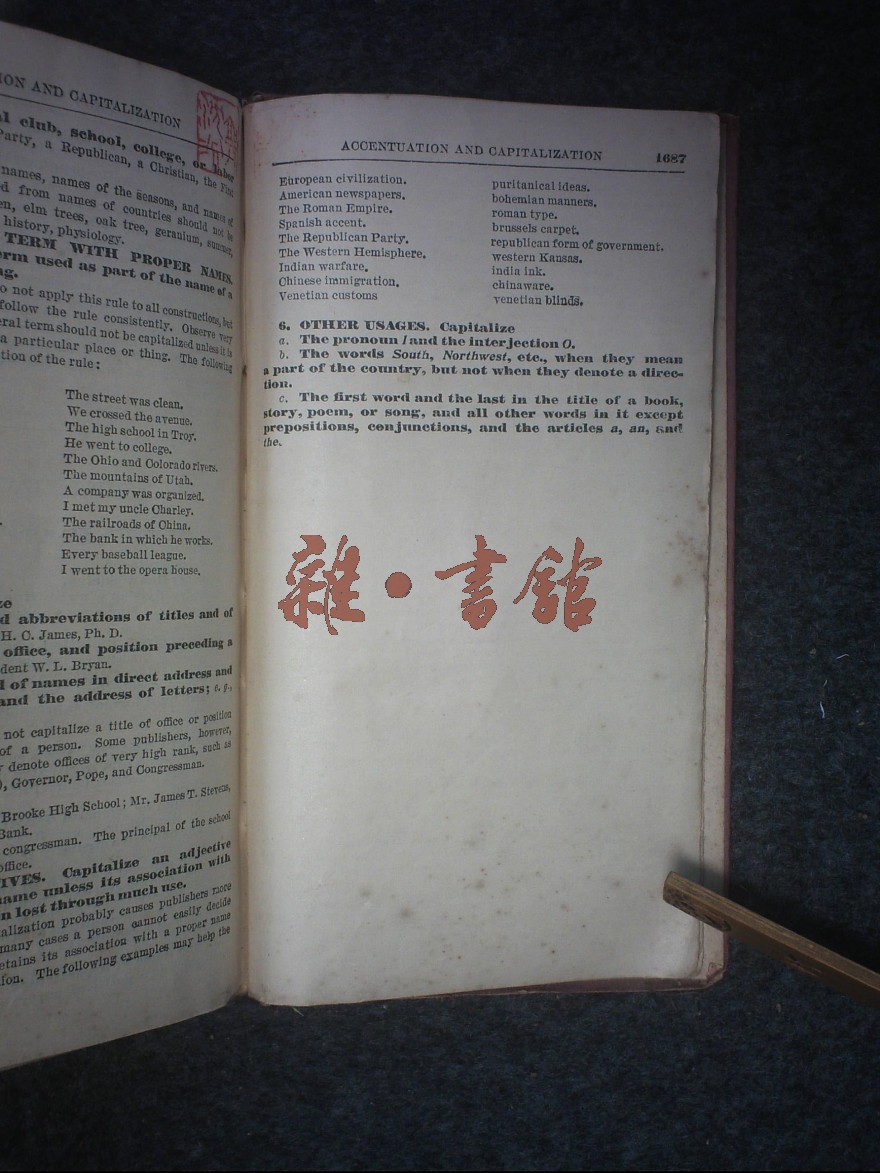 ION AND CAPITALIZATION
al club, school, college, or labor
Party, a Republican, a Christian, the First
names, names of the seasons, and names of
d from names of countries should not be
en, elm trees, oak tree, geranium, summer,
history, physiology.
TERM WITH PROPER NAMES.
erm used as part of the name of a
ng.
o not apply this rule to all constructions, but
follow the rule consistently. Observe very
eral term should not be capitalized unless it is
a particular place or thing. The following
tion of the rule:
The street was clean.
We crossed the avenue.
The high school in Troy.
He went to college.
The Ohio and Colorado rivers.
The mountains of Utah.
A company was organized.
I met my uncle Charley.
The railroads of China.
The bank in which he works.
Every baseball league.
I went to the opera house.
ze
d abbreviations of titles and of
H. C. James, Ph. D.
office, and position preceding a
dent W. L. Bryan.
l of names in direct address and
and the address of letters; e. g.,
not capitalize a title of office or position
of a person. Some publishers, however,
r denote offices of very high rank, such as
), Governor, Pope, and Congressman.
Brooke High School; Mr. James T. Stevens,
Bank.
congressman. The principal of the school
office.
IVES. Capitalize an adjective
name unless its association with
n lost through much use.
alization probably causes publishers more
many cases a person cannot easily decide
etains its association with a proper name
ion. The following examples may help the
ACCENTUATION AND CAPITALIZATION 1687
European civilization. puritanical ideas.
American newspapers. bohemian manners.
The Roman Empire. roman type.
Spanish accent. brussels carpet.
The Republican Party. republican form of government.
The Western Hemisphere. western Kansas.
Indian warfare. india ink.
Chinese immigration. chinaware.
Venetian customs venetian blinds.
6. OTHER USAGES. Capitalize
a. The pronoun I and the interjection O.
b. The words South, Northwest, etc., when they mean
a part of the country, but not when they denote a direc-
tion.
c. The first word and the last in the title of a book,
story, poem, or song, and all other words in it except
prepositions, conjunctions, and the articles a, an, and
the.
雜·書館